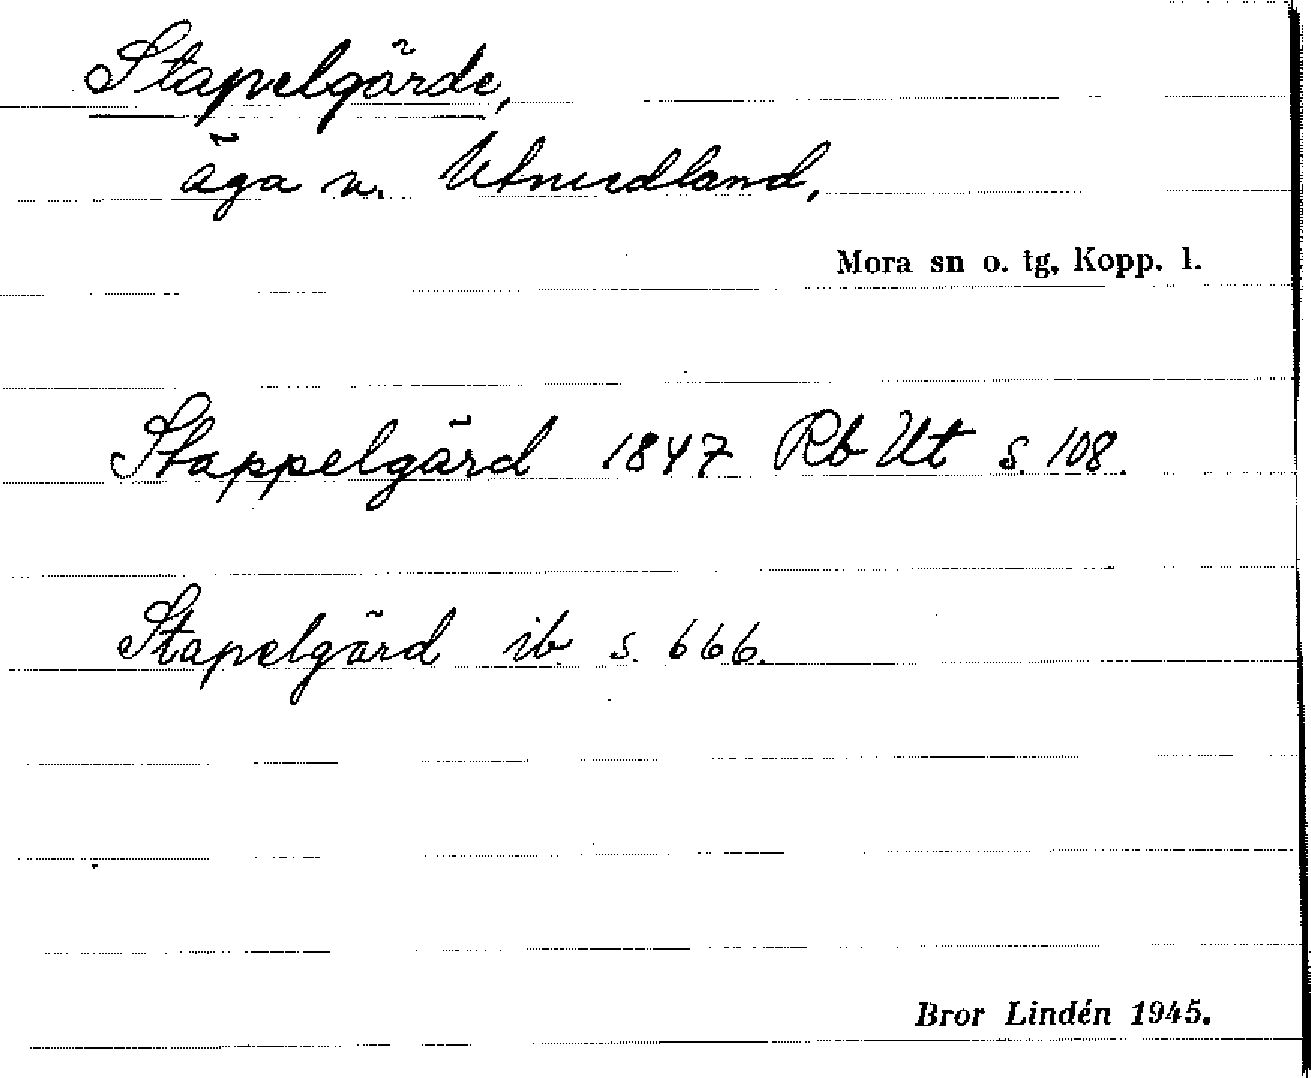 Stapelgärde,
äga v. Utmedland,
Mora sn o. tg, Kopp. l.
Stappelgärd 1847 Rb Ut s. 108.
Stapelgärd ib. s. 666.
Bror Lindén 1945.